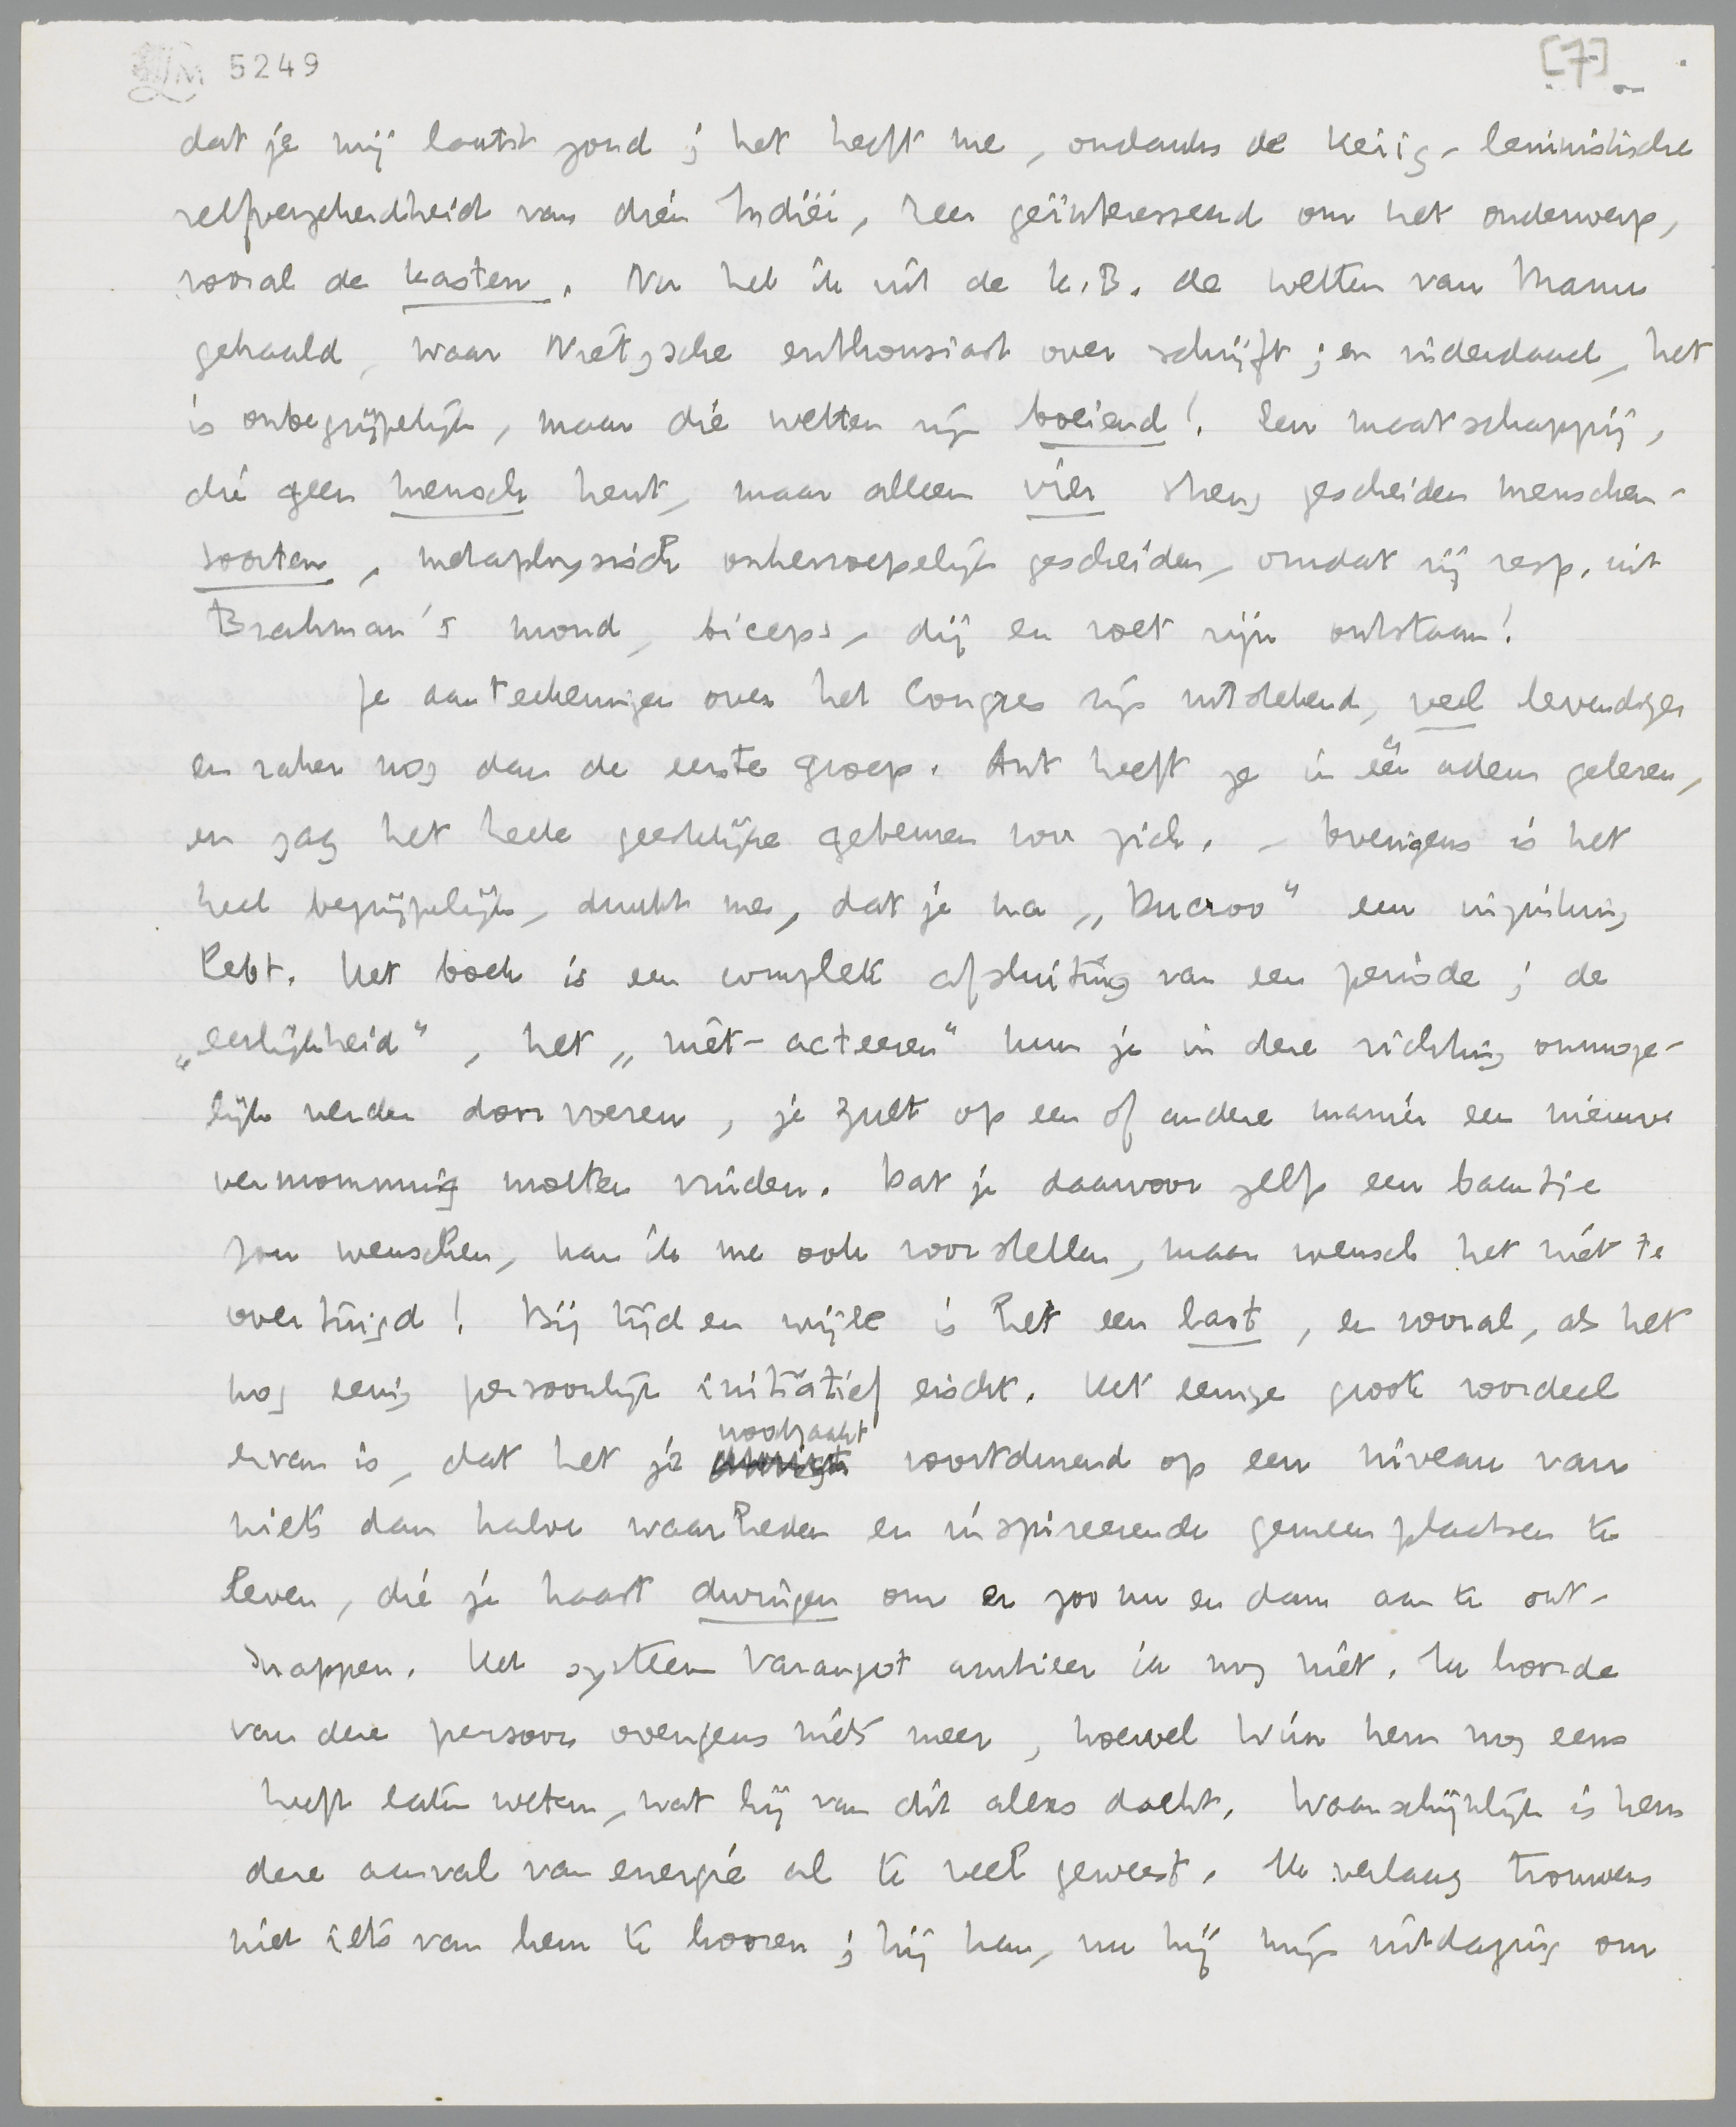 5249
[7]
dat je mij laatst zond; het heeft me, ondanks de keiig-leninistische
zelfverzekerdheid van dien Indiër, zeer geïnteresseerd om het onderwerp,
vooral de kasten. Nu heb ik uit de K.B. de wetten van Manu
gehaald, waar Nietzsche enthousiast over schrijft; en inderdaad, het
is onbegrijpelijk, maar die wetten zijn boeiend! Een maatschappij,
die geen mensch kent, maar alleen vier streng gescheiden menschen-
soorten, metaphysisch onherroepelijk gescheiden, omdat zij resp. uit
Brahman's mond, biceps, dij en voet zijn ontstaan!
Je aanteekeningen over het Congres zijn uitstekend, veel levendiger
en raker nog dan de eerste groep. Ant heeft ze in één adem gelezen,
en zag het heele geestelijke gebeuren voor zich. - Overigens is het
heel begrijpelijk, dunkt me, dat je na „Ducroo" een inzinking
hebt. Het boek is een complete afsluiting van een periode; de
„eerlijkheid", het „niet-acteeren" kun je in deze richting onmoge-
lijk verder doorvoeren, je zult op een of andere manier een nieuwe
vermomming moeten vinden. Dat je daarvoor zelfs een baantje
zou wenschen, kan ik me ook voorstellen, maar wensch het niet te
overtuigd! Bij tijd en wijle is het een last, en vooral, als het
nog eenig persoonlijk initiatief eischt. Het eenige groote voordeel
ervan is, dat het je noodzaakt voortdurend op een niveau van
niets dan halve waarheden en inspireerende gemeenplaatsen te
leven, die je haast dwingen om er zoo nu en dan aan te ont-
snappen. Het systeem Varangot ambieer ik nog niet. Ik hoorde
van deze persoon overigens niets meer, hoewel Wim hem nog eens
heeft laten weten, wat hij van dit alles dacht. Waarschijnlijk is hem
deze aanval van energie al te veel geweest. Ik verlang trouwens
niet iets van hem te hooren; hij kan, nu hij mijn uitdaging om